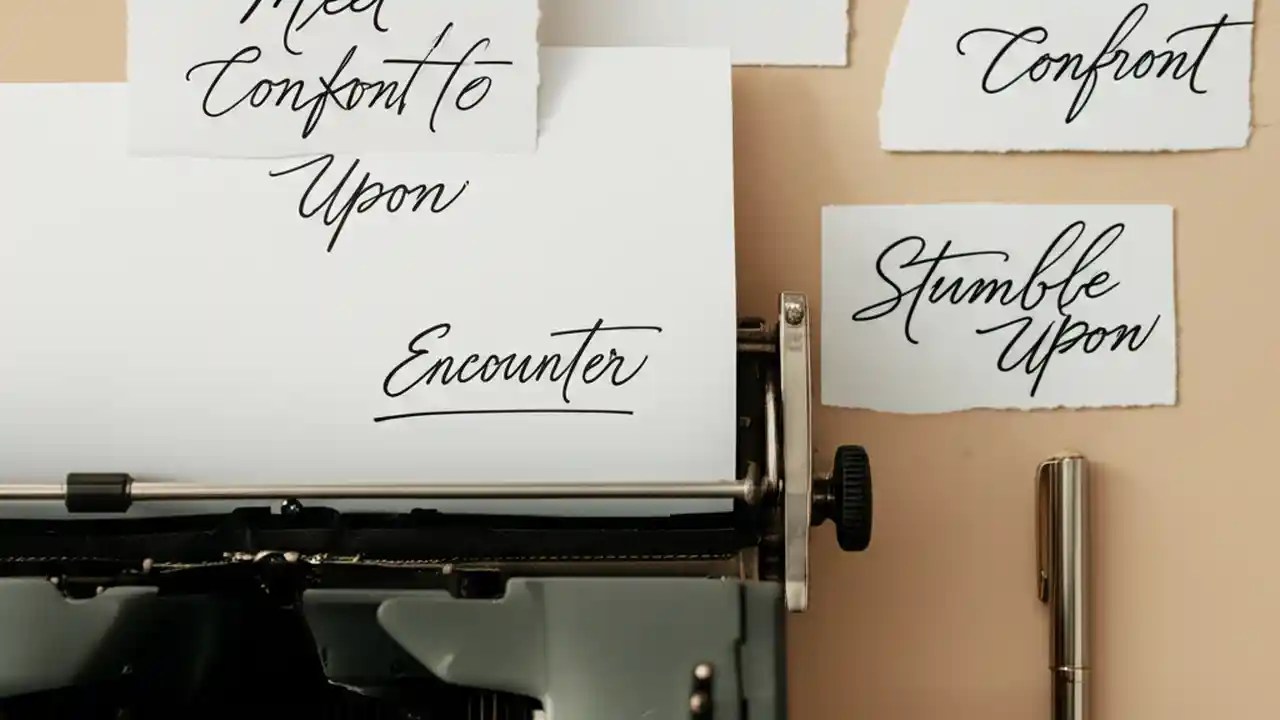 Meet
Confont to
Upon
Encounter
Confront
Stumble
Upon